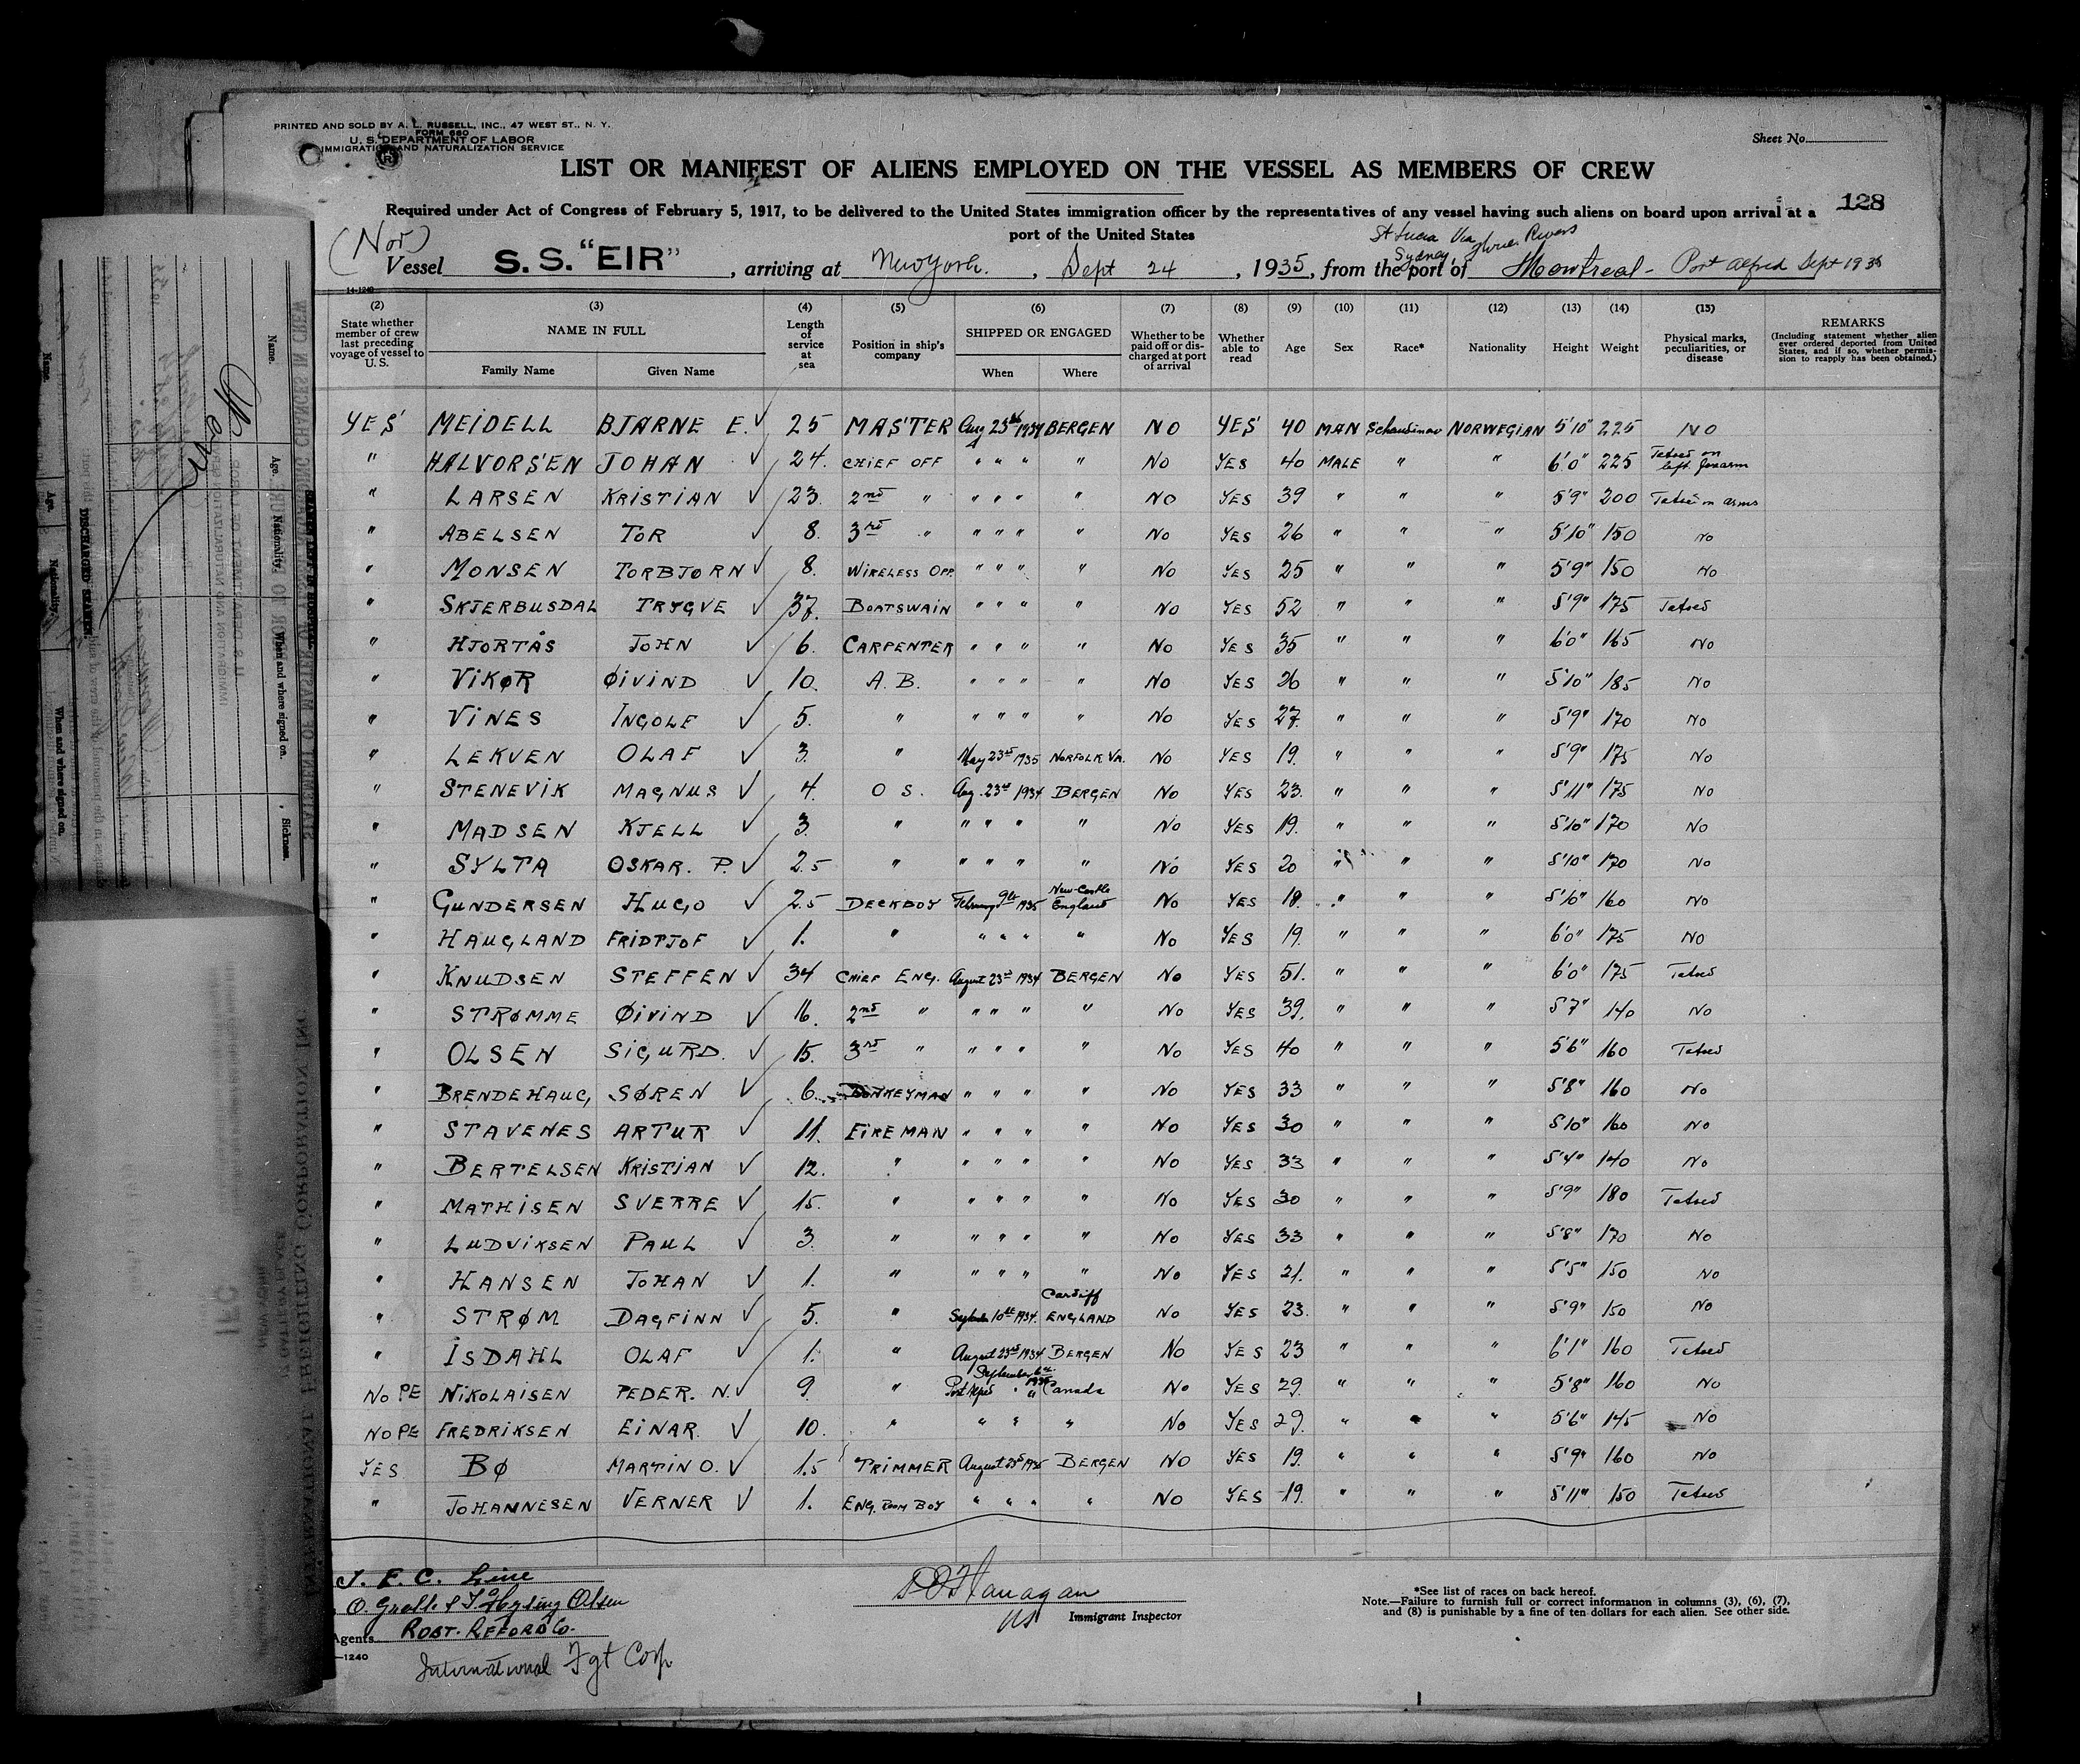 PRINTED AND SOLD BY A. L. RUSSELL, INC., 47 WEST ST., N. Y.
FORM 680
U. S. DEPARTMENT OF LABOR
IMMIGRATION AND NATURALIZATION SERVICE
Sheet No.
LIST OR MANIFEST OF ALIENS EMPLOYED ON THE VESSEL AS MEMBERS OF CREW
128
Required under Act of Congress of February 5, 1917, to be delivered to the United States immigration officer by the representatives of any vessel having such aliens on board upon arrival at a
port of the United States
(Nor) St Lucia Via Three Rivers
Sydney
Vessel S. S. "EIR", arriving at New York, Sept 24, 1935, from the port of Montreal - Port Alfred Sept 1935
14-1240
(2) (3) (4) (5) (6) (7) (8) (9) (10) (11) (12) (13) (14) (15)
State whether member of crew last preceding voyage of vessel to U. S. NAME IN FULL Family Name Given Name Length of service at sea Position in ship's company SHIPPED OR ENGAGED When Where Whether to be paid off or discharged at port of arrival Whether able to read Age Sex Race* Nationality Height Weight Physical marks, peculiarities, or disease REMARKS (Including statement whether alien ever ordered deported from United States, and if so, whether permission to reapply has been obtained.)
YES MEIDELL BJARNE E. ✓ 25 MASTER Aug 23rd 1934 BERGEN NO YES 40 MAN Schandinav NORWEGIAN 5'10" 225 NO
" HALVORSEN JOHAN ✓ 24. CHIEF OFF " " " " NO YES 40 MALE " " 6'0" 225 Tatoed on left forearm
" LARSEN KRISTIAN ✓ 23. 2nd " " " " " NO YES 39 " " " 5'9" 200 Tatoed on arms
" ABELSEN TOR ✓ 8. 3rd " " " " " NO YES 26 " " " 5'10" 150 NO
" MONSEN TORBJØRN ✓ 8. WIRELESS OPP. " " " " NO YES 25 " " " 5'9" 150 NO
" SKJERBUSDAL TRYGVE ✓ 37. BOATSWAIN " " " " NO YES 52 " " " 5'9" 175 Tatoed
" HJORTÅS JOHN ✓ 6. CARPENTER " " " " NO YES 35 " " " 6'0" 165 NO
" VIKØR ØIVIND ✓ 10. A. B. " " " " NO YES 26 " " " 5'10" 185 NO
" VINES INGOLF ✓ 5. " " " " " NO YES 27. " " " 5'9" 170 NO
" LEKVEN OLAF ✓ 3. " May 23rd 1935 NORFOLK VA. NO YES 19. " " " 5'9" 175 NO
" STENEVIK MAGNUS ✓ 4. O S. Aug. 23rd 1934 BERGEN NO YES 23. " " " 5'11" 175 NO
" MADSEN KJELL ✓ 3. " " " " " NO YES 19. " " " 5'10" 170 NO
" SYLTA OSKAR. P. ✓ 2.5 " " " " " NO YES 20 " " " 5'10" 170 NO
" GUNDERSEN HUGO ✓ 2.5 DECKBOY February 9th 1935 New-Castle England NO YES 18. " " " 5'10" 160 NO
" HAUGLAND FRIDTJOF ✓ 1. " " " " " NO YES 19. " " " 6'0" 175 NO
" KNUDSEN STEFFEN ✓ 34 CHIEF ENG. August 23rd 1934 BERGEN NO YES 51. " " " 6'0" 175 Tatoed
" STRØMME ØIVIND ✓ 16. 2nd " " " " " NO YES 39. " " " 5'7" 140 NO
" OLSEN SIGURD. ✓ 15. 3rd " " " " " NO YES 40 " " " 5'6" 160 Tatoed
" BRENDEHAUG SØREN ✓ 6. DONKEYMAN " " " " NO YES 33 " " " 5'8" 160 NO
" STAVENES ARTUR ✓ 11. FIREMAN " " " " NO YES 30 " " " 5'10" 160 NO
" BERTELSEN KRISTIAN ✓ 12. " " " " " NO YES 33 " " " 5'4" 140 NO
" MATHISEN SVERRE ✓ 15. " " " " " NO YES 30 " " " 5'9" 180 Tatoed
" LUDVIKSEN PAUL ✓ 3. " " " " " NO YES 33 " " " 5'8" 170 NO
" HANSEN JOHAN ✓ 1. " " " " " NO YES 21. " " " 5'5" 150 NO
" STRØM DAGFINN ✓ 5. " September 10th 1934. Cardiff ENGLAND NO YES 23. " " " 5'9" 150 NO
" ISDAHL OLAF ✓ 1. " August 23rd 1934 BERGEN NO YES 23 " " " 6'1" 160 Tatoed
NO PE NIKOLAISEN PEDER. N. ✓ 9. " September 6th 1935 Port Alfred Canada NO YES 29. " " " 5'8" 160 NO
NO PE FREDRIKSEN EINAR. ✓ 10. " " " " NO YES 29. " " " 5'6" 145 NO
YES BØ MARTIN O. ✓ 1.5 TRIMMER August 23rd 1935 BERGEN NO YES 19. " " " 5'9" 160 NO
" JOHANNESEN VERNER ✓ 1. ENG. ROOM BOY " " " " NO YES 19. " " " 5'11" 150 Tatoed
I. F. C. Line
O. Grolle & T. Heysing Olsen
Agents ROBT. REFORD Co.
—1240
International Fgt Corp
D O'Flanagan
US Immigrant Inspector
*See list of races on back hereof.
Note.—Failure to furnish full or correct information in columns (3), (6), (7),
and (8) is punishable by a fine of ten dollars for each alien. See other side.
Name.
Age.
Nationality.
When and where signed on.
Sickness.
DISCHARGED SEAMEN
Name.
Age.
Nationality.
When and where signed on.
STATEMENT OF MASTER
U. S. DEPARTMENT OF LABOR
IMMIGRATION AND NATURALIZATION SERVICE
INTERNATIONAL FREIGHTING CORPORATION INC.
IFC